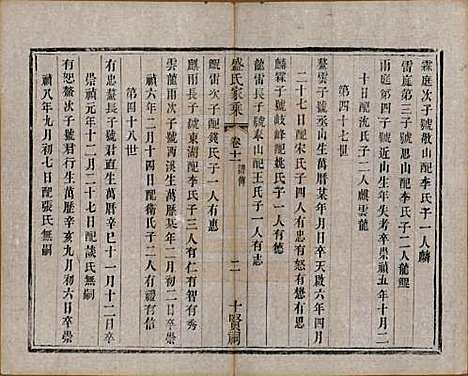 霖庭次子號敬山配李氏子一人麟
雷庭第三子號思山配李氏子二人龍鯤
雨庭第四子號近山生年失考卒崇禎五年十月二
十日配沈氏子二人麒雲龍
第四十七世
鰲雲子號 山生萬曆某年月日卒天啟六年四月
二十七日配宋氏子四人有忠有恕有懋有思
麟霖子號岐峰配姚氏子一人有德
龍雷長子號泰山配王氏子一人有志
盛氏家乘
卷十一
譜傳
二
十賢祠
鯤雷次子配錢氏子一人有惠
麒雨長子號東湖配 氏子三人有仁有智有秀
雲龍雨次子號西溪生萬曆某年二月初二日卒崇
禎六年二月十四日配衛氏子二人有禮有信
第四十八世
有忠鰲長子號君直生萬曆辛巳十一月十二日卒
崇禎元年十二月二十七日配談氏無嗣
有恕鰲次子號 生萬曆辛亥九月初六日卒崇
禎八年九月初七日配張氏無嗣